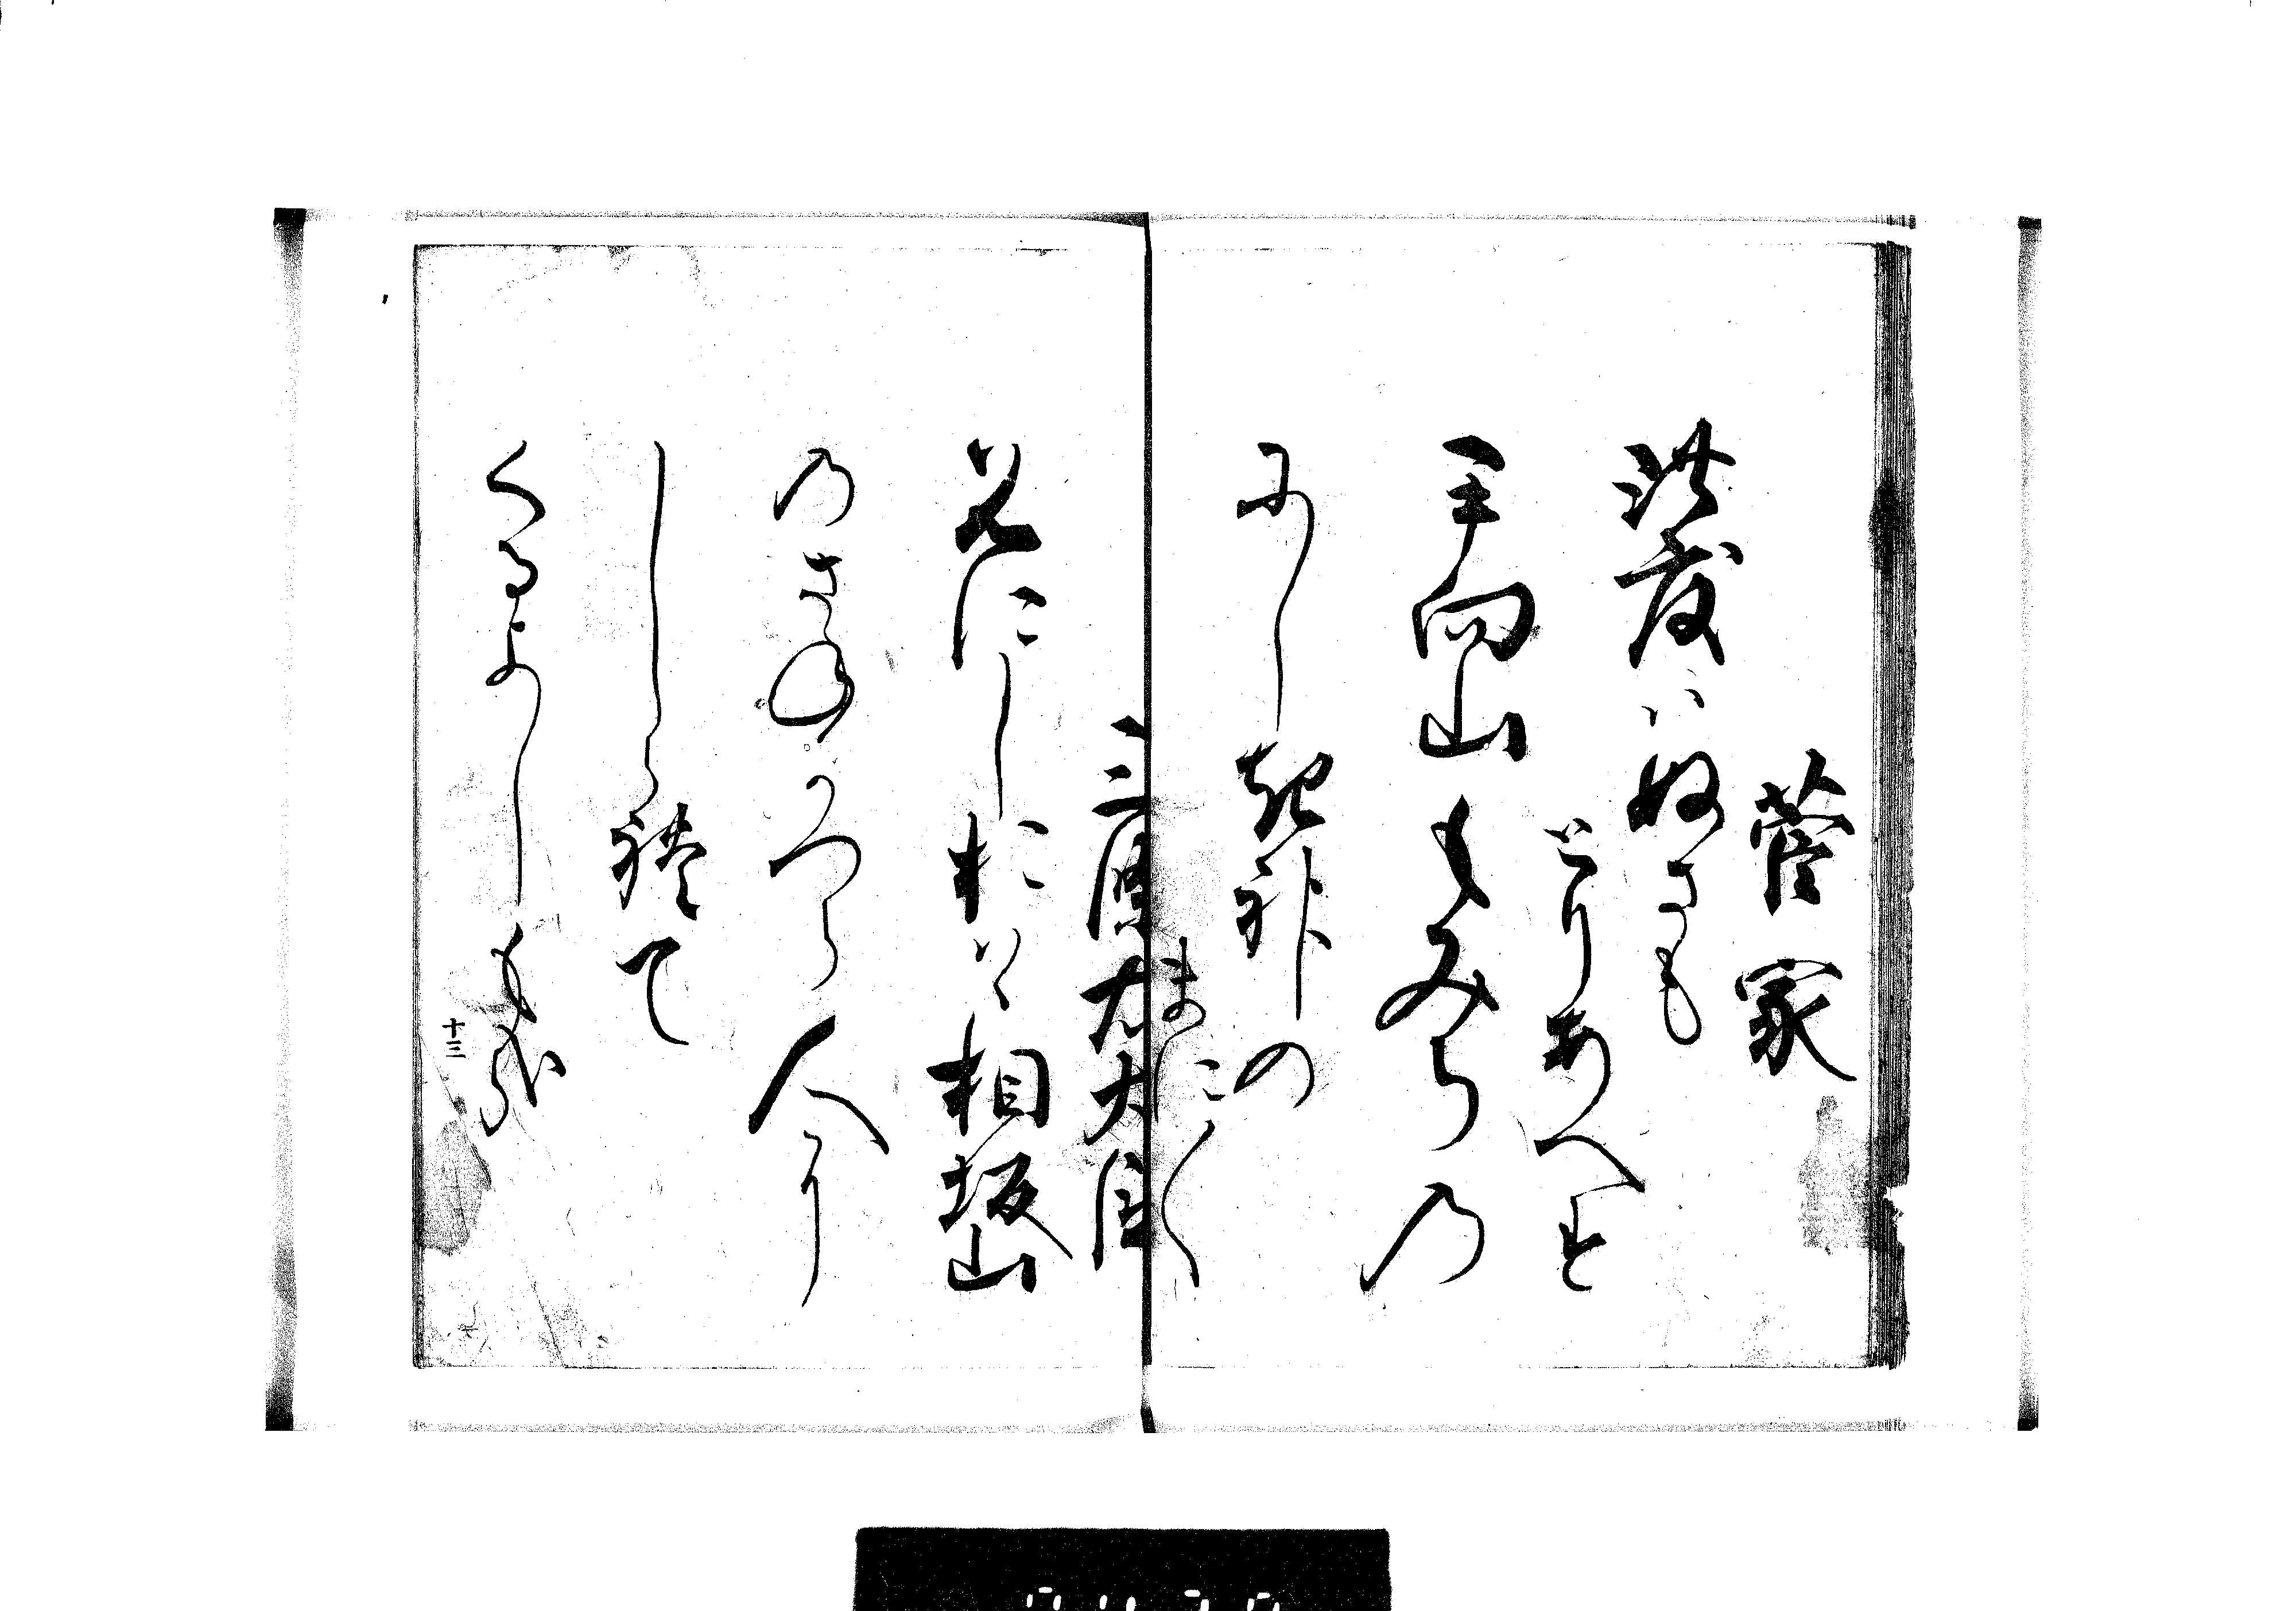 菅家
此度ハぬさも
とりあへす
手向山もみちの
にしき神の
まに〱
三條右大臣
名にしおはゝ相坂山
のさねかつら人に
しられて
くるよしもかな
十三